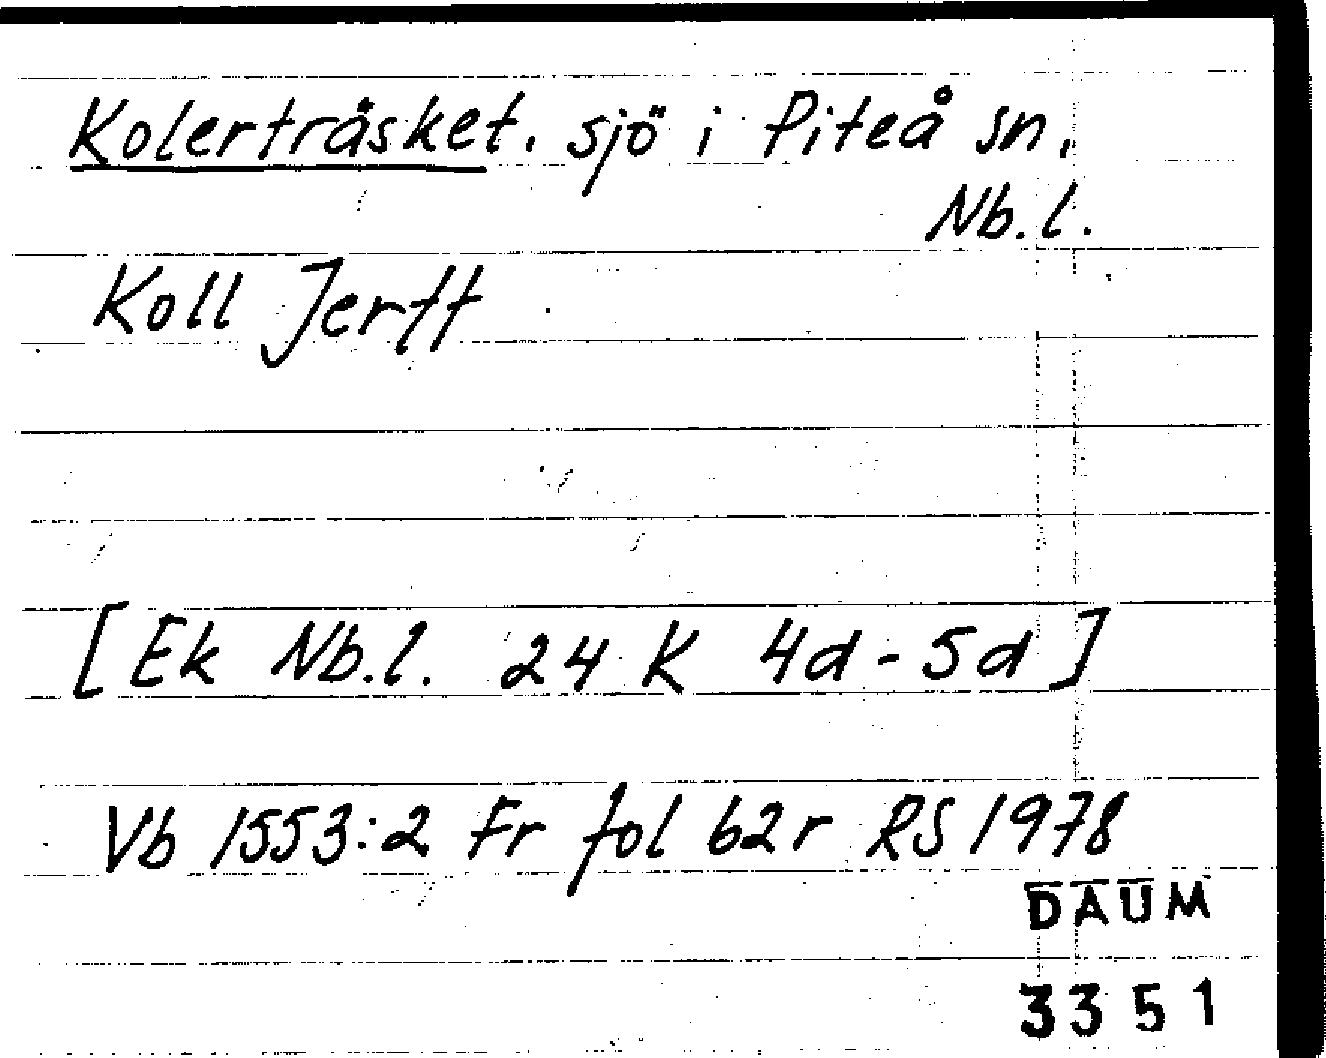 Kolerträsket. sjö i Piteå sn.
Nb.l.
Koll Jertt
[Ek Nb.l. 24 K 4d-5d]
Vb 1553:2 Fr fol 62r RS 1978
DAUM
3351